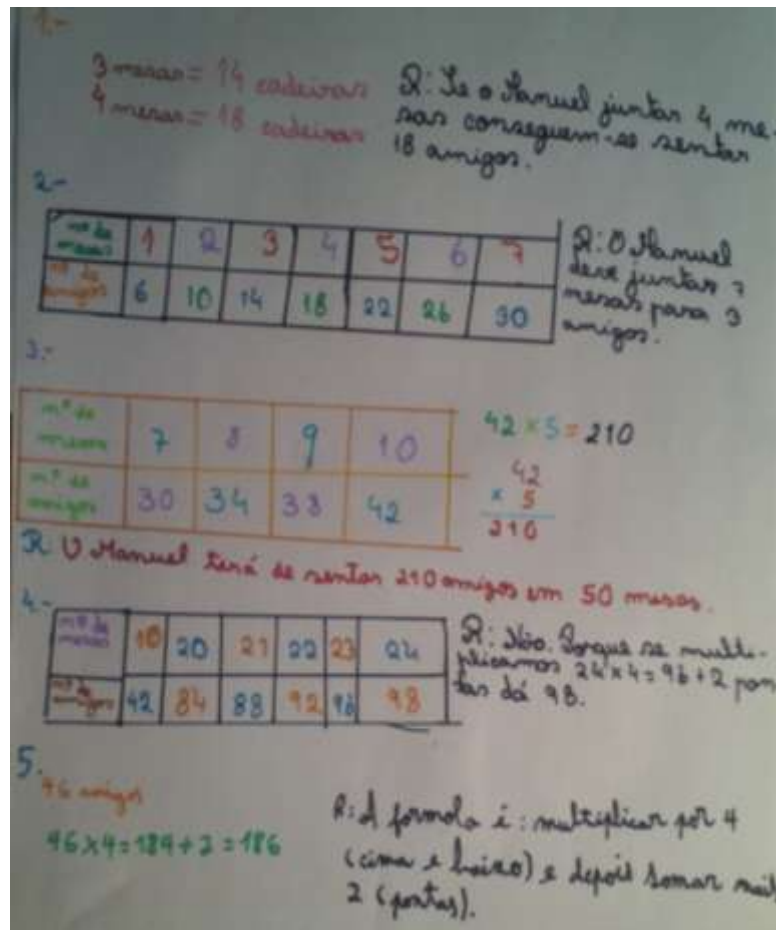 1.-
3 mesas = 14 cadeiras
4 mesas = 18 cadeiras
R: Se o Manuel juntar 4 me-
sas conseguem-se sentar
18 amigos.
2-
nº de mesas 1 2 3 4 5 6 7
nº de amigos 6 10 14 18 22 26 30
R: O Manuel
deve juntar 7
mesas para 3
amigos.
3.-
nº de mesas 7 8 9 10
nº de amigos 30 34 38 42
42 x 5 = 210
42
x 5
210
R: O Manuel terá de sentar 210 amigos em 50 mesas.
4.-
nº de mesas 10 20 21 22 23 24
nº de amigos 42 84 88 92 96 98
R: Não. Porque se multi-
plicarmos 24 x 4 = 96 + 2 pon
tas dá 98.
5.
46 amigos
46 x 4 = 184 + 2 = 186
R: A formola é: multiplicar por 4
(cima e baixo) e depois somar mais
2 (pontas).